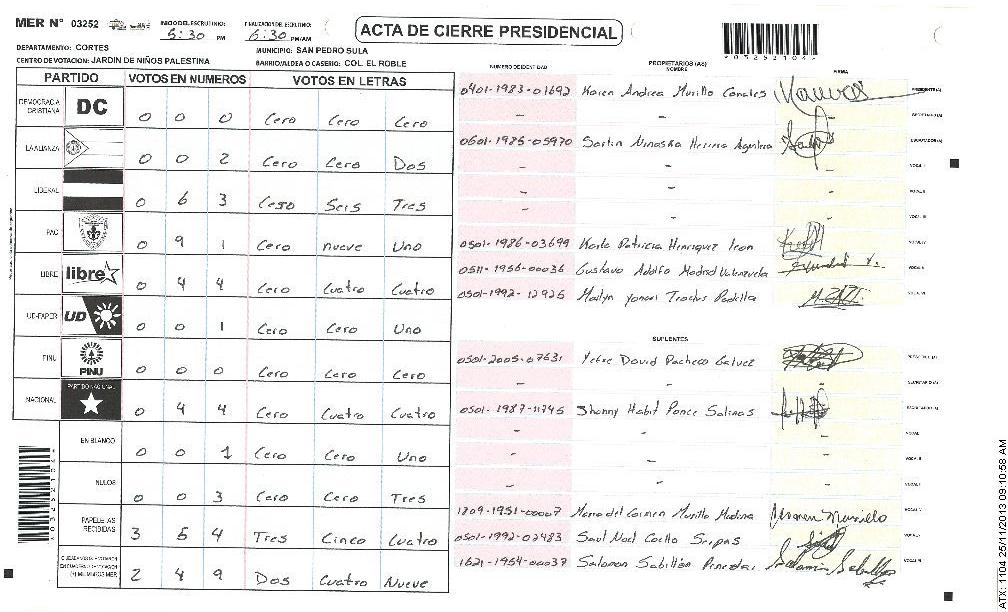 MER N° 03252 INICIO DEL ESCRUTINIO: 5:30 PM FINALIZACION DEL ESCRUTINIO: 6:30 PM/AM
ACTA DE CIERRE PRESIDENCIAL
DEPARTAMENTO: CORTES MUNICIPIO: SAN PEDRO SULA
CENTRO DE VOTACION: JARDIN DE NIÑOS PALESTINA BARRIO/ALDEA O CASERIO: COL. EL ROBLE
PARTIDO VOTOS EN NUMEROS VOTOS EN LETRAS
DEMOCRACIA CRISTIANA DC 0 0 0 Cero Cero Cero
LA ALIANZA 0 0 2 Cero Cero Dos
LIBERAL 0 6 3 Cero Seis Tres
PAC 0 9 1 Cero nueve Uno
LIBRE libre 0 4 4 Cero Cuatro Cuatro
UD-FAPER UD 0 0 1 Cero Cero Uno
PINU PINU 0 0 0 Cero Cero Cero
NACIONAL PARTIDO NACIONAL 0 4 4 Cero Cuatro Cuatro
EN BLANCO 0 0 1 Cero Cero Uno
NULOS 0 0 3 Cero Cero Tres
PAPELETAS RECIBIDAS 3 5 4 Tres Cinco Cuatro
2 4 9 Dos Cuatro Nueve
NUMERO DE IDENTIDAD PROPIETARIOS (AS) NOMBRE FIRMA
0401-1983-01692 Karen Andrea Murillo Canales PRESIDENTE(A)
SECRETARIO(A)
0501-1985-05970 Herrera Aguilera ESCRUTADOR(A)
VOCAL I
VOCAL II
VOCAL III
0501-1986-03699 Karla Patricia Henriquez VOCAL IV
0511-1956-00036 Gustavo Adolfo Madrid Valenzuela VOCAL V
0501-1992-12925 Padilla VOCAL VI
SUPLENTES
0501-2005-07631 David Pacheco Galvez PRESIDENTE(A)
SECRETARIO(A)
0501-1987-11745 Jhonny Habit Ponce Salinas ESCRUTADOR(A)
VOCAL I
VOCAL II
VOCAL III
1809-1951-00007 Maria del Carmen Murillo Medina Carmen Murillo VOCAL IV
0501-1992-02483 Saul Noel Coello VOCAL V
1621-1954-00037 Salomon Sabillón Pineda VOCAL VI
03252104
ATX: 1104 25/11/2013 09:10:58 AM